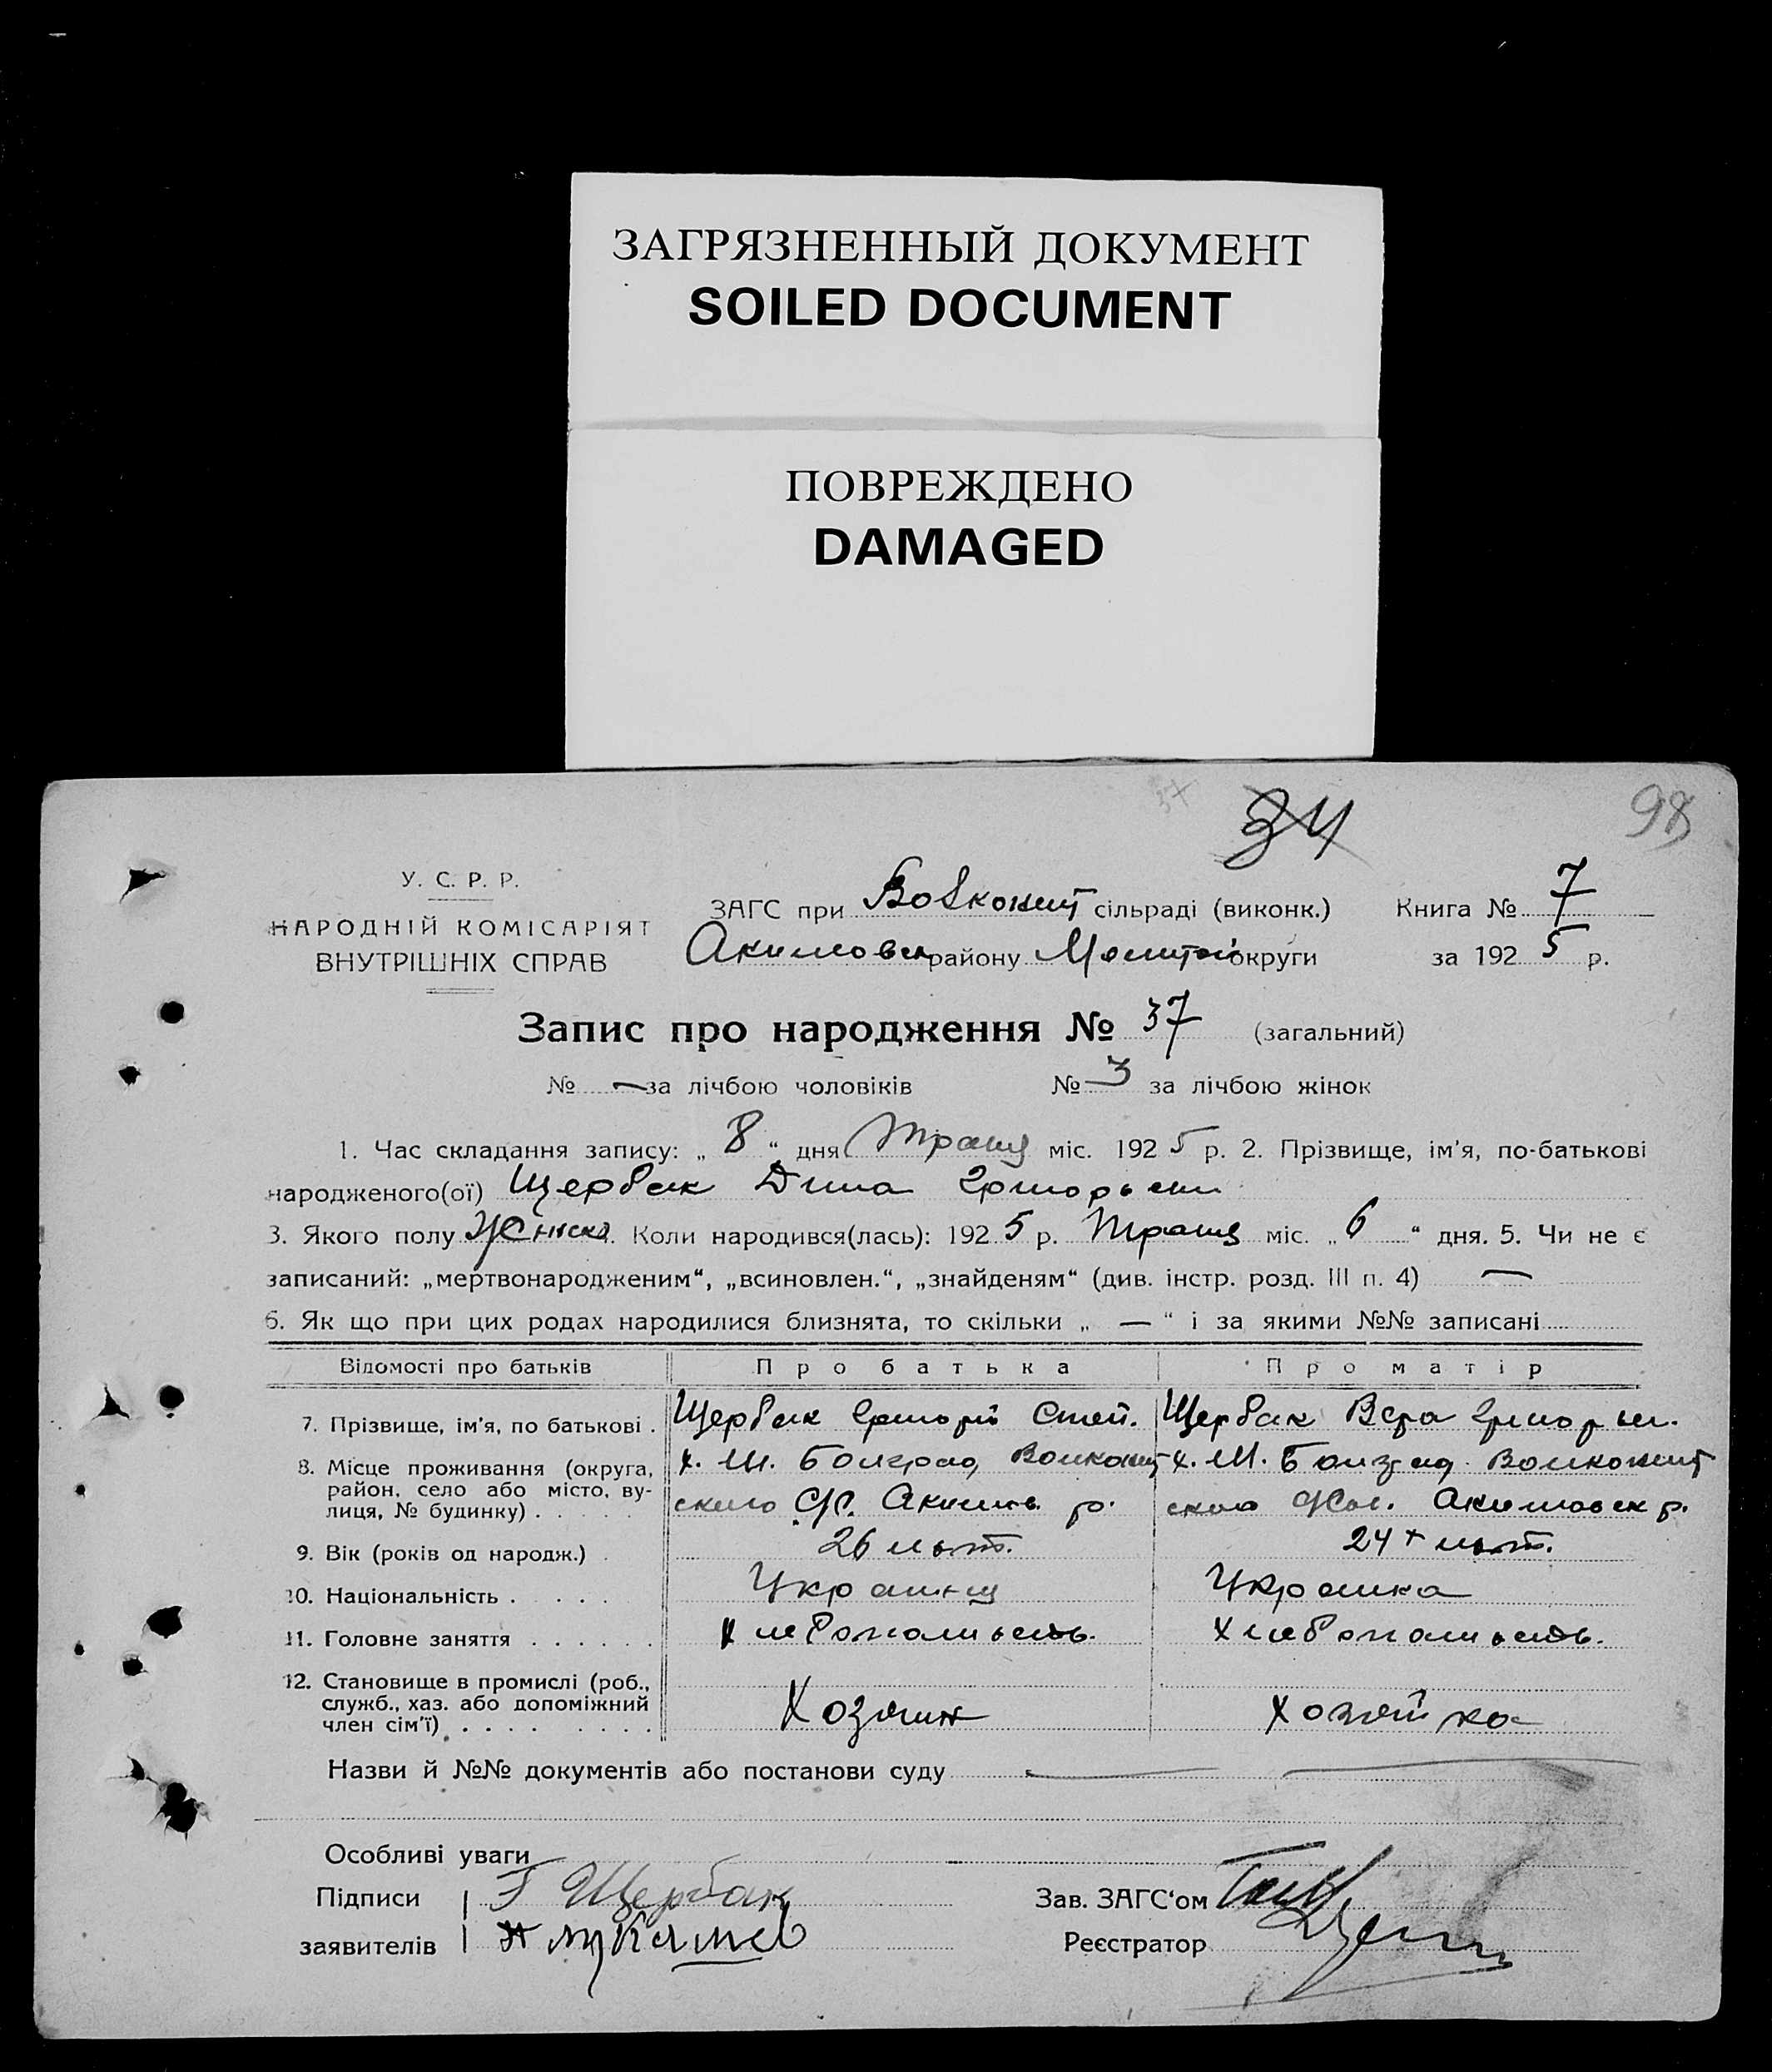 ЗАГРЯЗНЕННЫЙ ДОКУМЕНТ
SOILED DOCUMENT
ПОВРЕЖДЕНО
DAMAGED
34
98
У. С. Р. Р.
НАРОДНІЙ КОМІСАРІЯТ
ВНУТРІШНІХ СПРАВ
ЗАГС при сільраді (виконк.) Книга № 7
Акимовск району округи за 1925 р.
Запис про народження № 37 (загальний)
№ — за лічбою чоловіків № 3 за лічбою жінок
1. Час складання запису: „ 8 “ дня Травц міс. 1925 р. 2. Прізвище, ім'я, по-батькові
народженого(ої) Щербак
3. Якого полу Коли народився(лась): 1925 р. Травц міс. „ 6 “ дня. 5. Чи не є
записаний: „мертвонародженим“, „всиновлен.“, „знайденям“ (див. інстр. розд. III п. 4) —
6. Як що при цих родах народилися близнята, то скільки „ — “ і за якими №№ записані
Відомості про батьків Про батька Про матір
7. Прізвище, ім'я, по батькові . Щербак Григорій Степ. Щербак Вера Григорьев.
8. Місце проживання (округа, район, село або місто, вулиця, № будинку) . . . . . х. Ш. Болград х. Ш. Болград
ского С/С. Аким. р. ского Акимовск р.
9. Вік (років од народж.) . 26 лет. 24 лет.
10. Національність . . . . . Украинц Украинка
11. Головне заняття . . . . . . Хлебопашесть. Хлебопашесть.
12. Становище в промислі (роб., служб., хаз. або допоміжний член сім'ї) . . . . . . . . Хозяин хозяйка
Назви й №№ документів або постанови суду —
Особливі уваги
Підписи Г Щербак Зав. ЗАГС'ом
заявителів Реєстратор